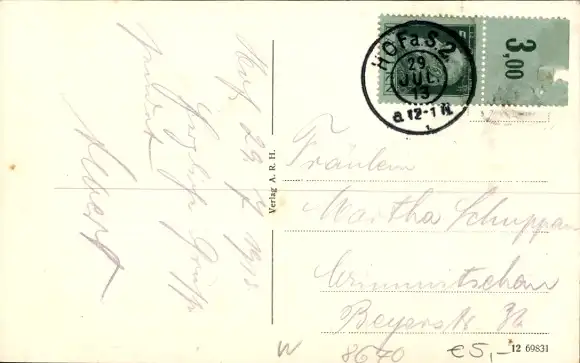 Hof, 29. 7. 1913
Herzliche Grüße
sendet
Albert
Verlag A. R. H.
HOF a. S. 2.
29
JUL
13
a 12-1 N
3,00
Fräulein
Martha Schuppan
Crimmitschau
Beyerstr.
W
8670
€5,-
12 69831